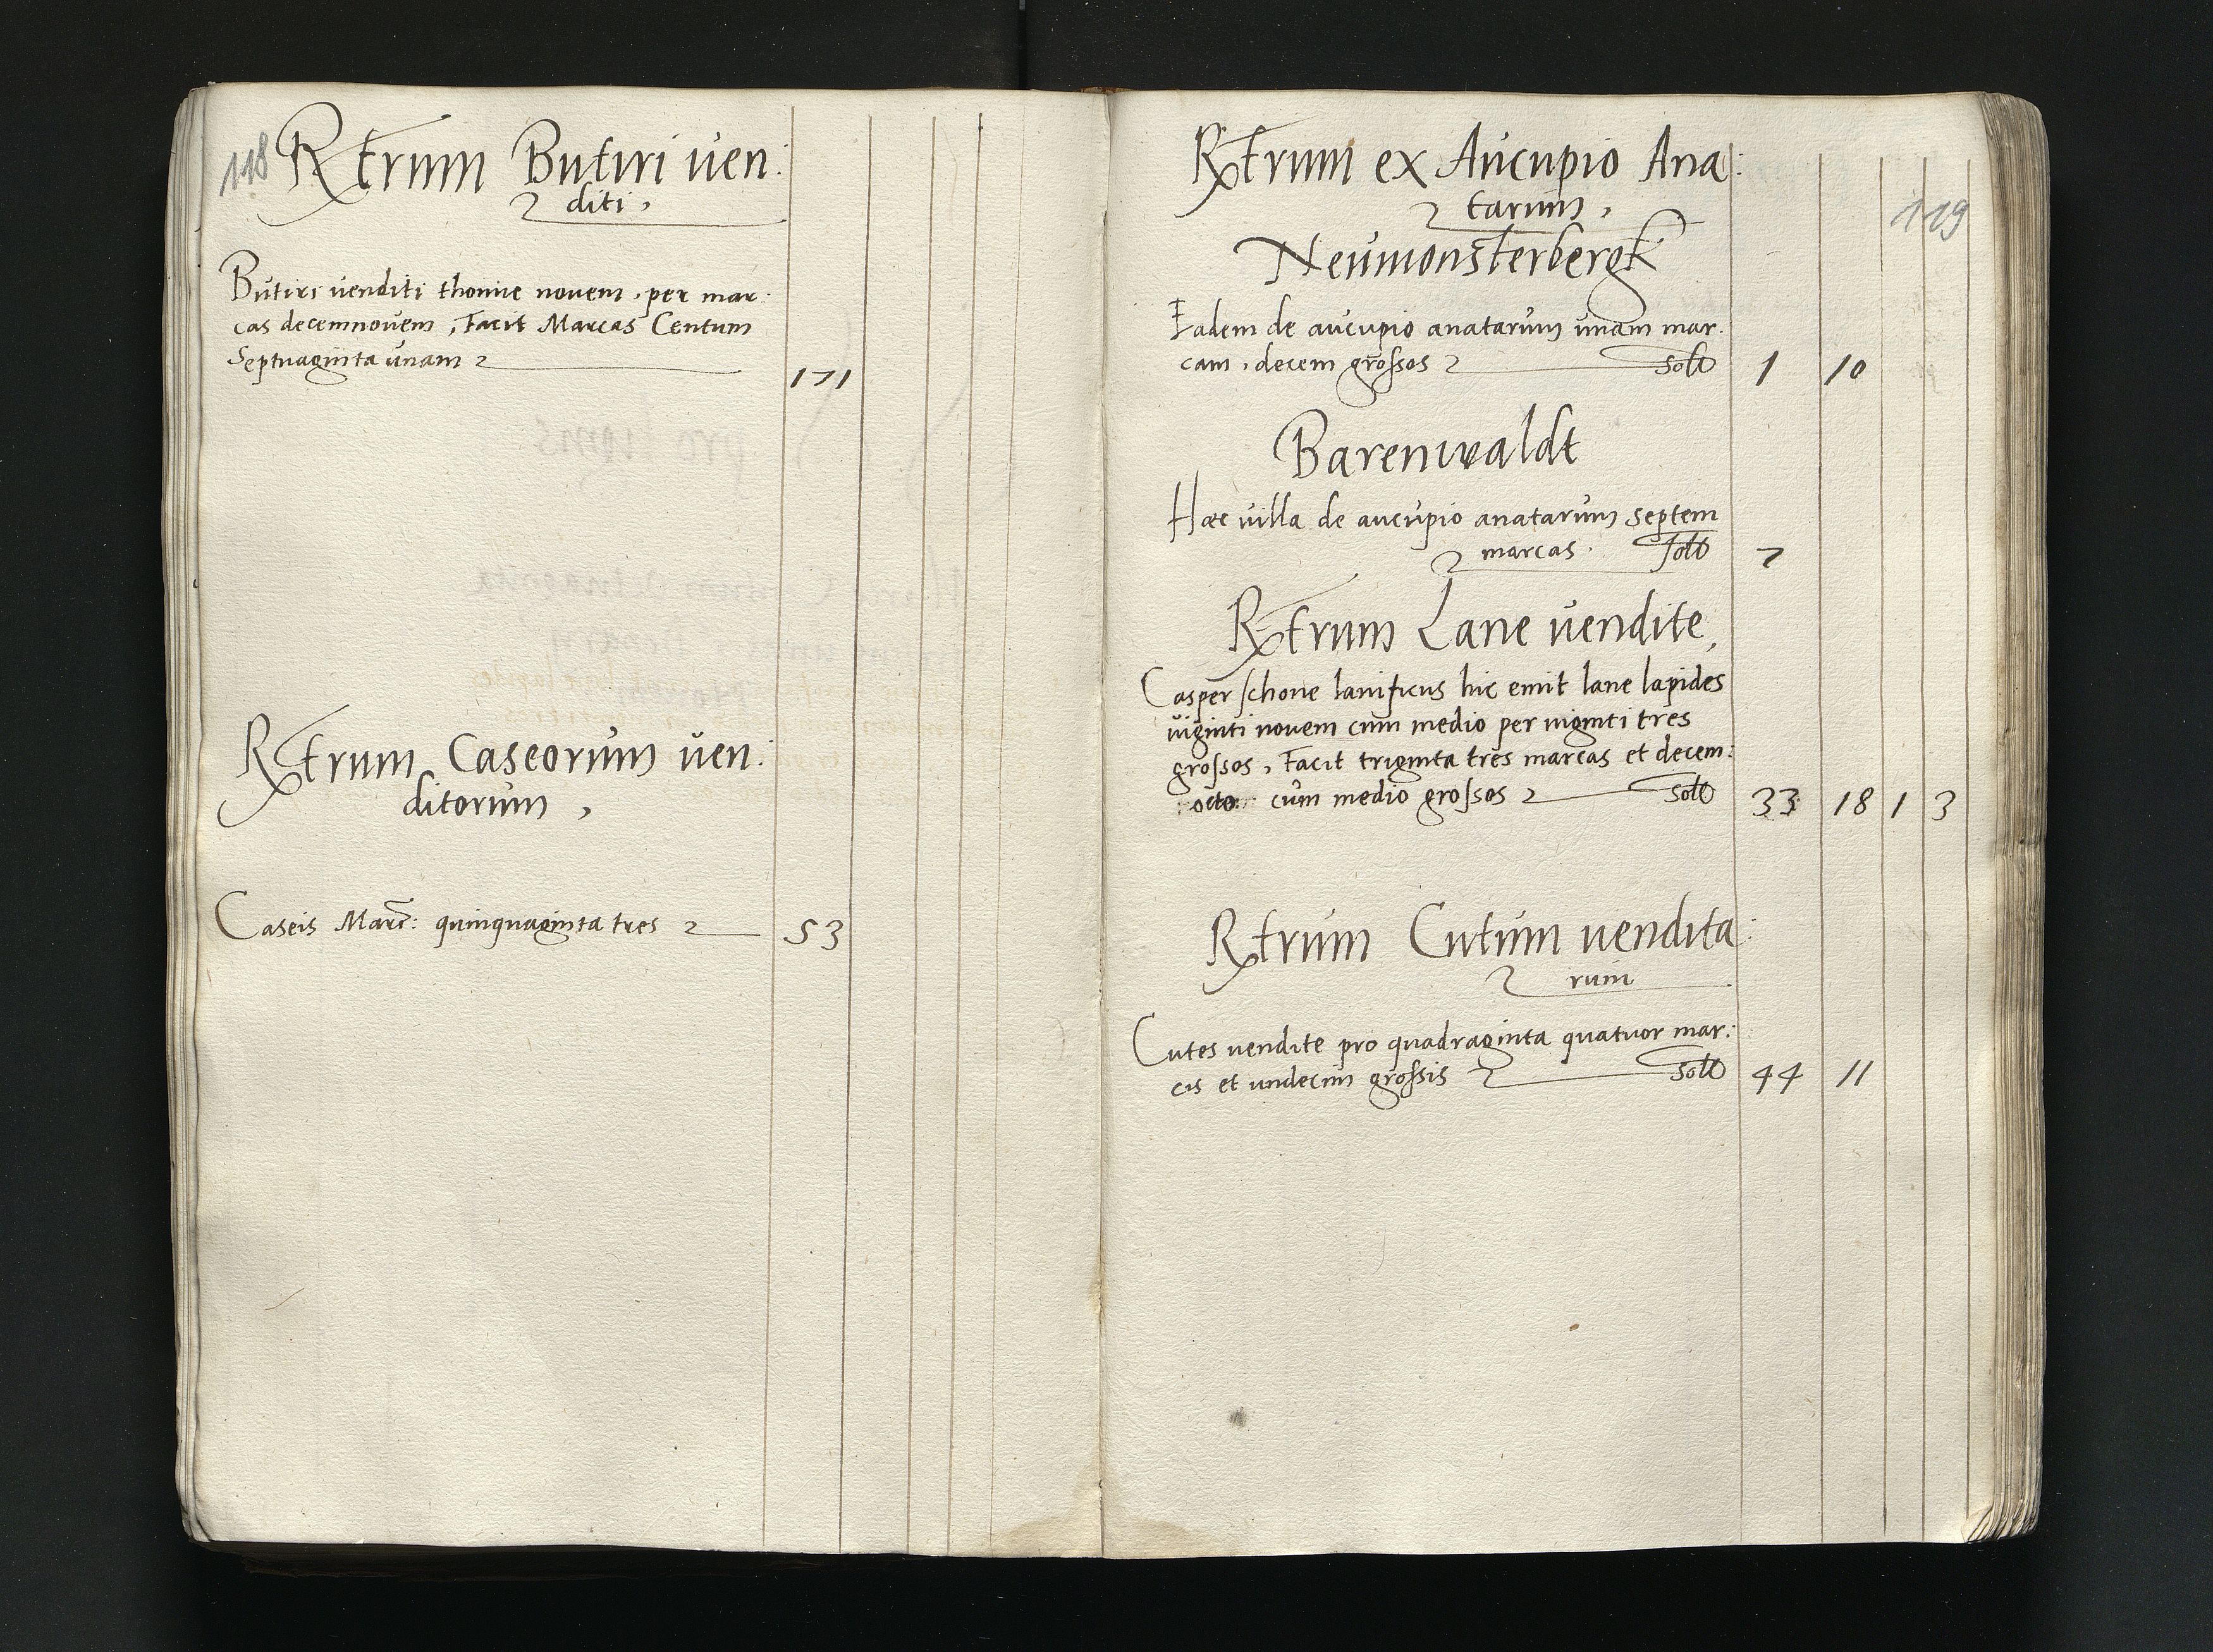 118
Rtrum Butiri ven:
diti,
Butiri venditi thonne novem, per mar:
cas decemnovem, Facit Marcas Centum
Septuaginta unam 171
Rtrum Caseorum ven:
ditorum,
Caseis Marc: quinquaginta tres 53
119
Rtrum ex Aucupio Ana:
tarum,
Neumonsterbergk
Eadem de aucupio anatarum unam mar:
cam, decem grossos solt 1 10
Barenwaldt
Haec villa de aucupio anatarum septem
marcas. solt 7
Rtrum Lane vendite,
Casper schone lanificus hic emit lane lapides
viginti novem cum medio per viginti tres
grossos, Facit triginta tres marcas et decem:
octo: cum medio grossos solt 33 18 1 3
Rtrum Cutum vendita:
rum
Cutes vendite pro quadraginta quatuor mar:
cis et undecim grossis solt 44 11